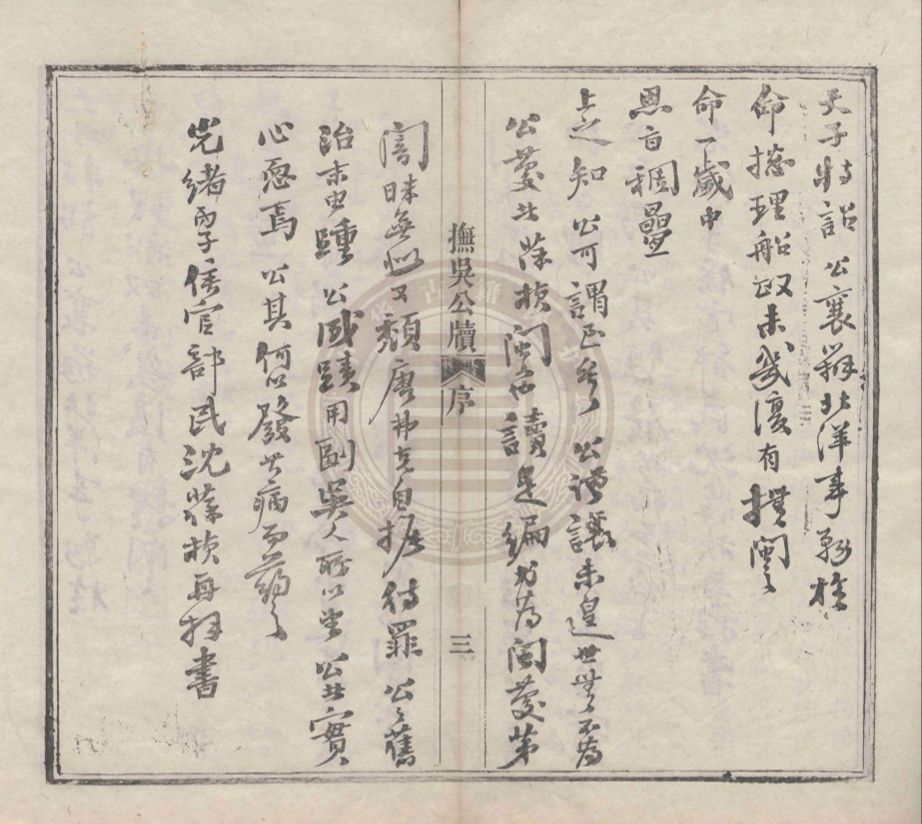 天子特詔 公襄辦北洋事務旋
命總理船政未幾復有撫閩之
命一歲中
恩旨稠疊
上之知 公可謂至矣 公謙讓未遑世無不為
公慶者葆楨閩讀是編為閩慶第
撫吳公牘 序 三
闇昧無似又頹唐弗克自振待罪 公之舊
治未由踵 公成蹟用副吳人所以望 公者實
心恧焉 公其何以發其病而藥之
光緒丙子官部民沈葆楨再拜書